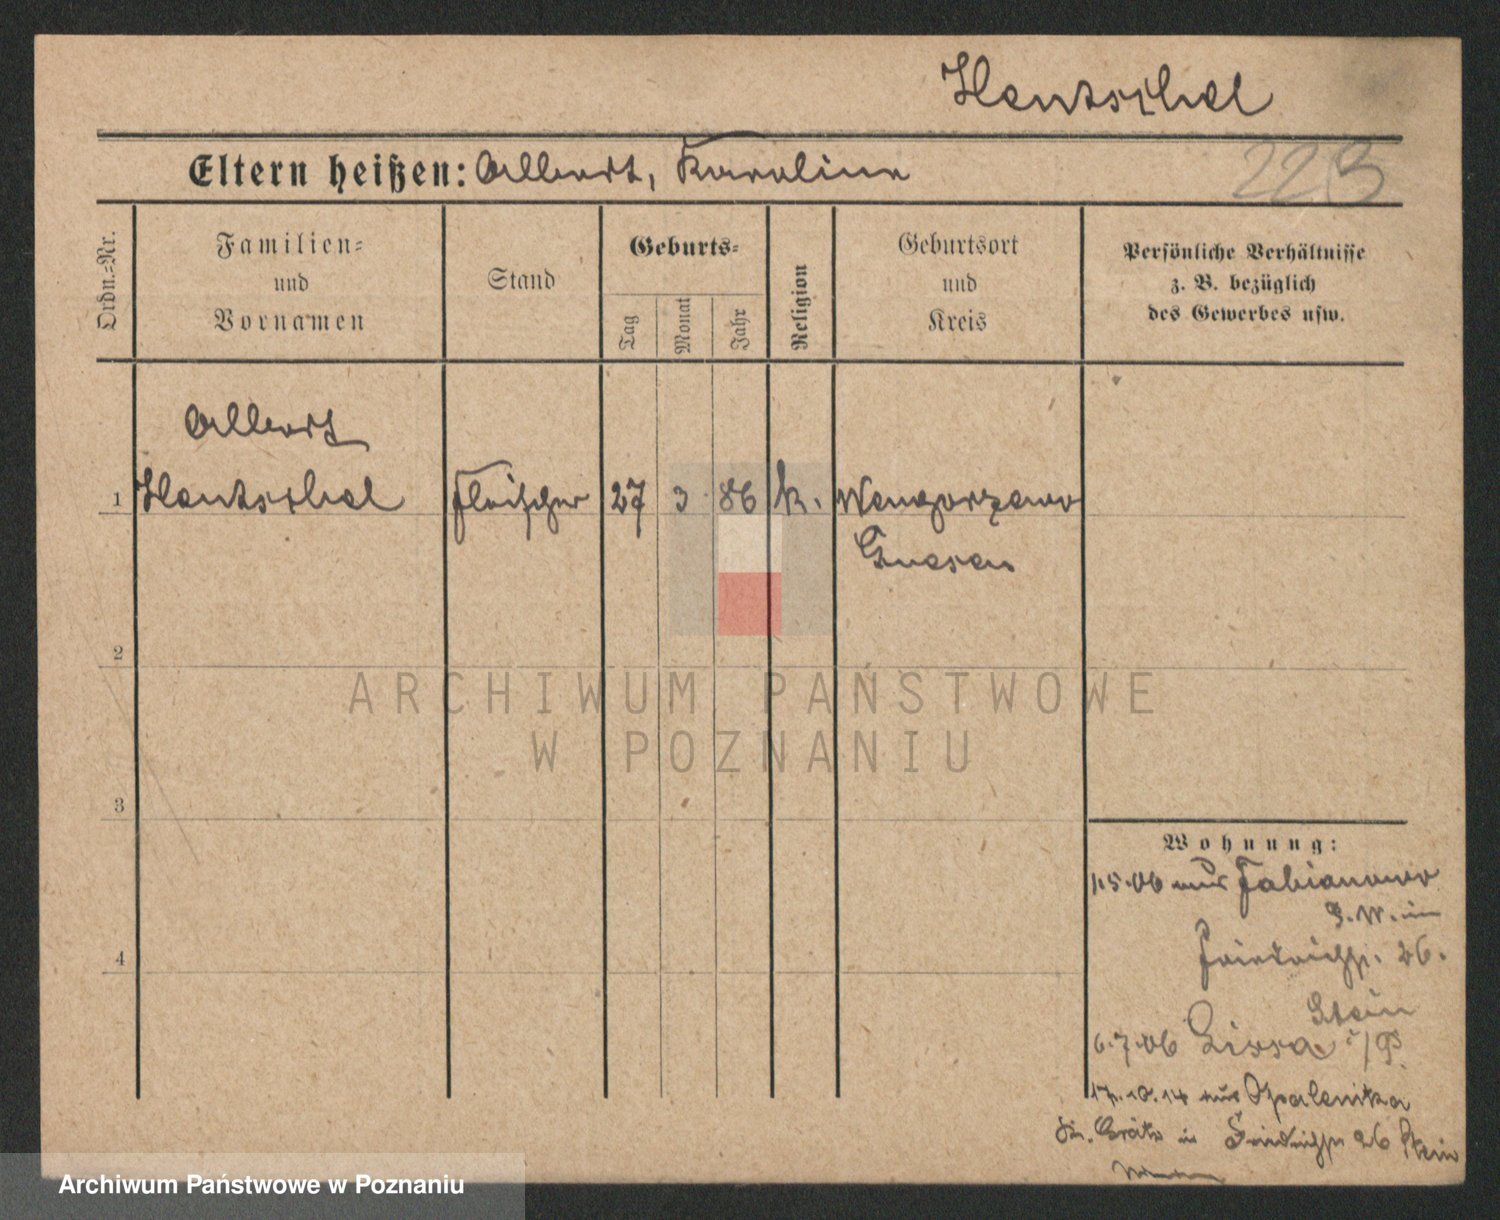 Hentschel
Eltern heißen: Albert, Karoline
223
Ordn.-Nr.
Familien-
und
Vornamen
Stand
Geburts-
Tag
Monat
Jahr
Religion
Geburtsort
und
Kreis
Persönliche Verhältnisse
z. B. bezüglich
des Gewerbes usw.
Albert
1 Hentschel Fleischer 27 3 86 k. Wengorzewo
Gnesen
2
3
4
Wohnung:
1.5.06 aus Fabianowo
Friedrichstr. 26.
Stein
6.7.06 Lissa i/P.
17.10.14 aus Opalenitza
Kr. Grätz in Friedrichstr 26 Stein
ARCHIWUM PAŃSTWOWE
W POZNANIU
Archiwum Państwowe w Poznaniu